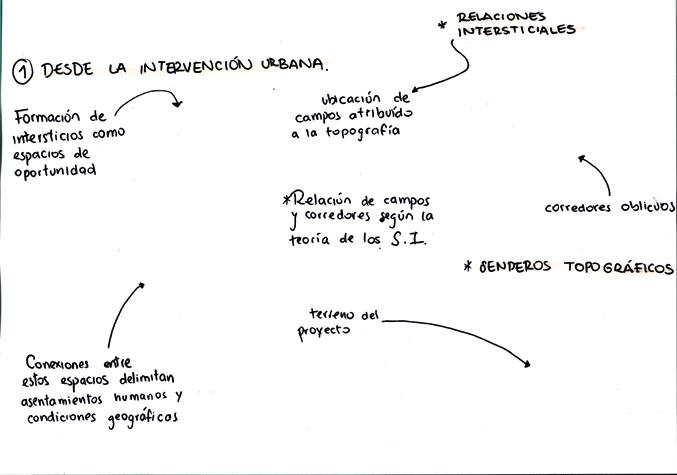 * RELACIONES
INTERSTICIALES
① DESDE LA INTERVENCIÓN URBANA.
Formación de
intersticios como
espacios de
oportunidad
ubicación de
campos atribuído
a la topografía
*Relación de campos
y corredores según la
teoría de los S.I.
corredores oblicuos
* SENDEROS TOPOGRÁFICOS
terreno del
proyecto
Conexiones entre
estos espacios delimitan
asentamientos humanos y
condiciones geográficas